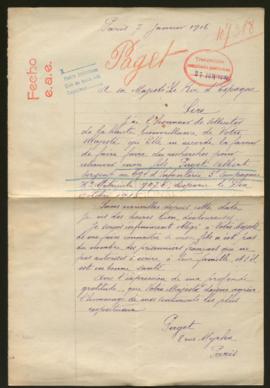 Paris 7 Janvier 1916
Paget
Fecho
e.a.e.
A sa Majesté Le Roi d'Espagne
Sire
J'ai l'honneur de solliciter
de la haute bienveillance de Votre
Majesté, qu'Elle m'accorde la faveur
de faire faire des recherches pour
retrouver mon fils Paget Albert
Sergent au d'Infanterie Compagnie
No Matricule disparu le
1915
Sans nouvelles depuis cette date
je vis des heures bien douloureuses.
Je serais infiniment obligé à Votre Majesté
de me faire connaître si mon fils est
du nombre des prisonniers français
pas autorisés à écrire à leur famille, et s'il
est en bonne santé.
Avec l'expression de ma profonde
gratitude, que Votre Majesté daigne agréer
l'hommage de mes sentiments les plus
respectueux
Paget
rue Myrha
Paris